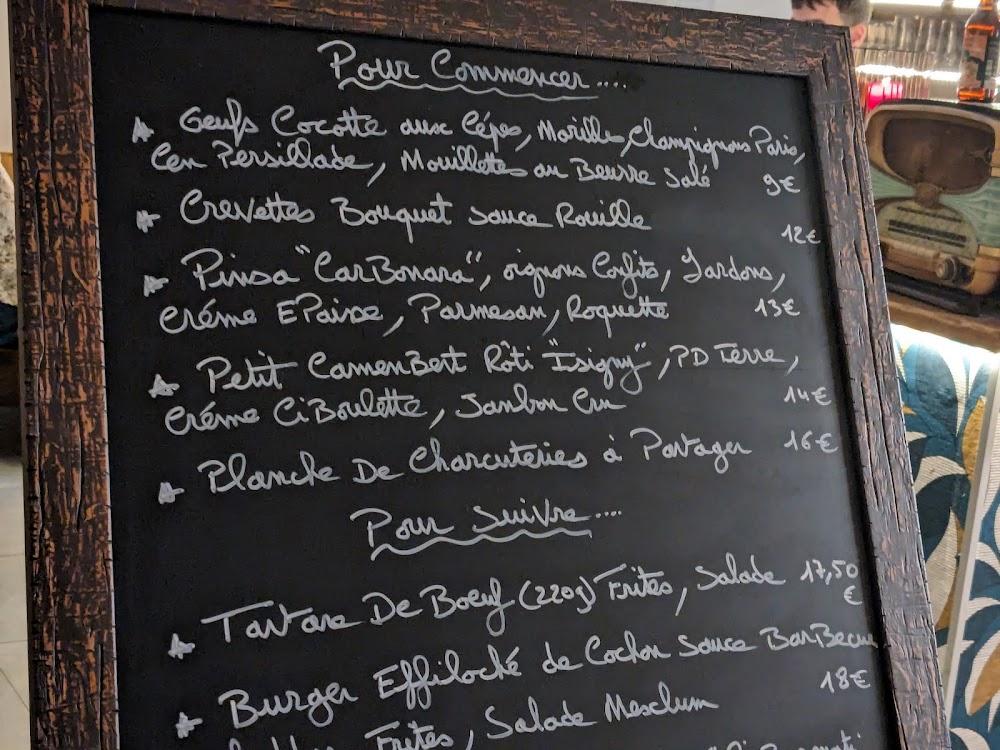 Pour Commencer....
Oeufs Cocotte aux Cépes, Morilles, Champignons Paris,
en Persillade, Mouillettes au Beurre Salé 9€
Crevettes Bouquet sauce Rouille 12€
Pinsa "CarBonara", oignons Confits, Lardons,
Créme EPaisse, Parmesan, Roquette 13€
Petit CamemBert Rôti "Isigny", PD Terre,
Créme CiBoulette, Jambon Cru 14€
Planche De Charcuteries à Partager 16€
Pour Suivre....
Tartare De Boeuf (220g) Frites, Salade 17,50
€
Burger Effiloché de Cochon Sauce BarBecue
18€
Frites, Salade Mesclum